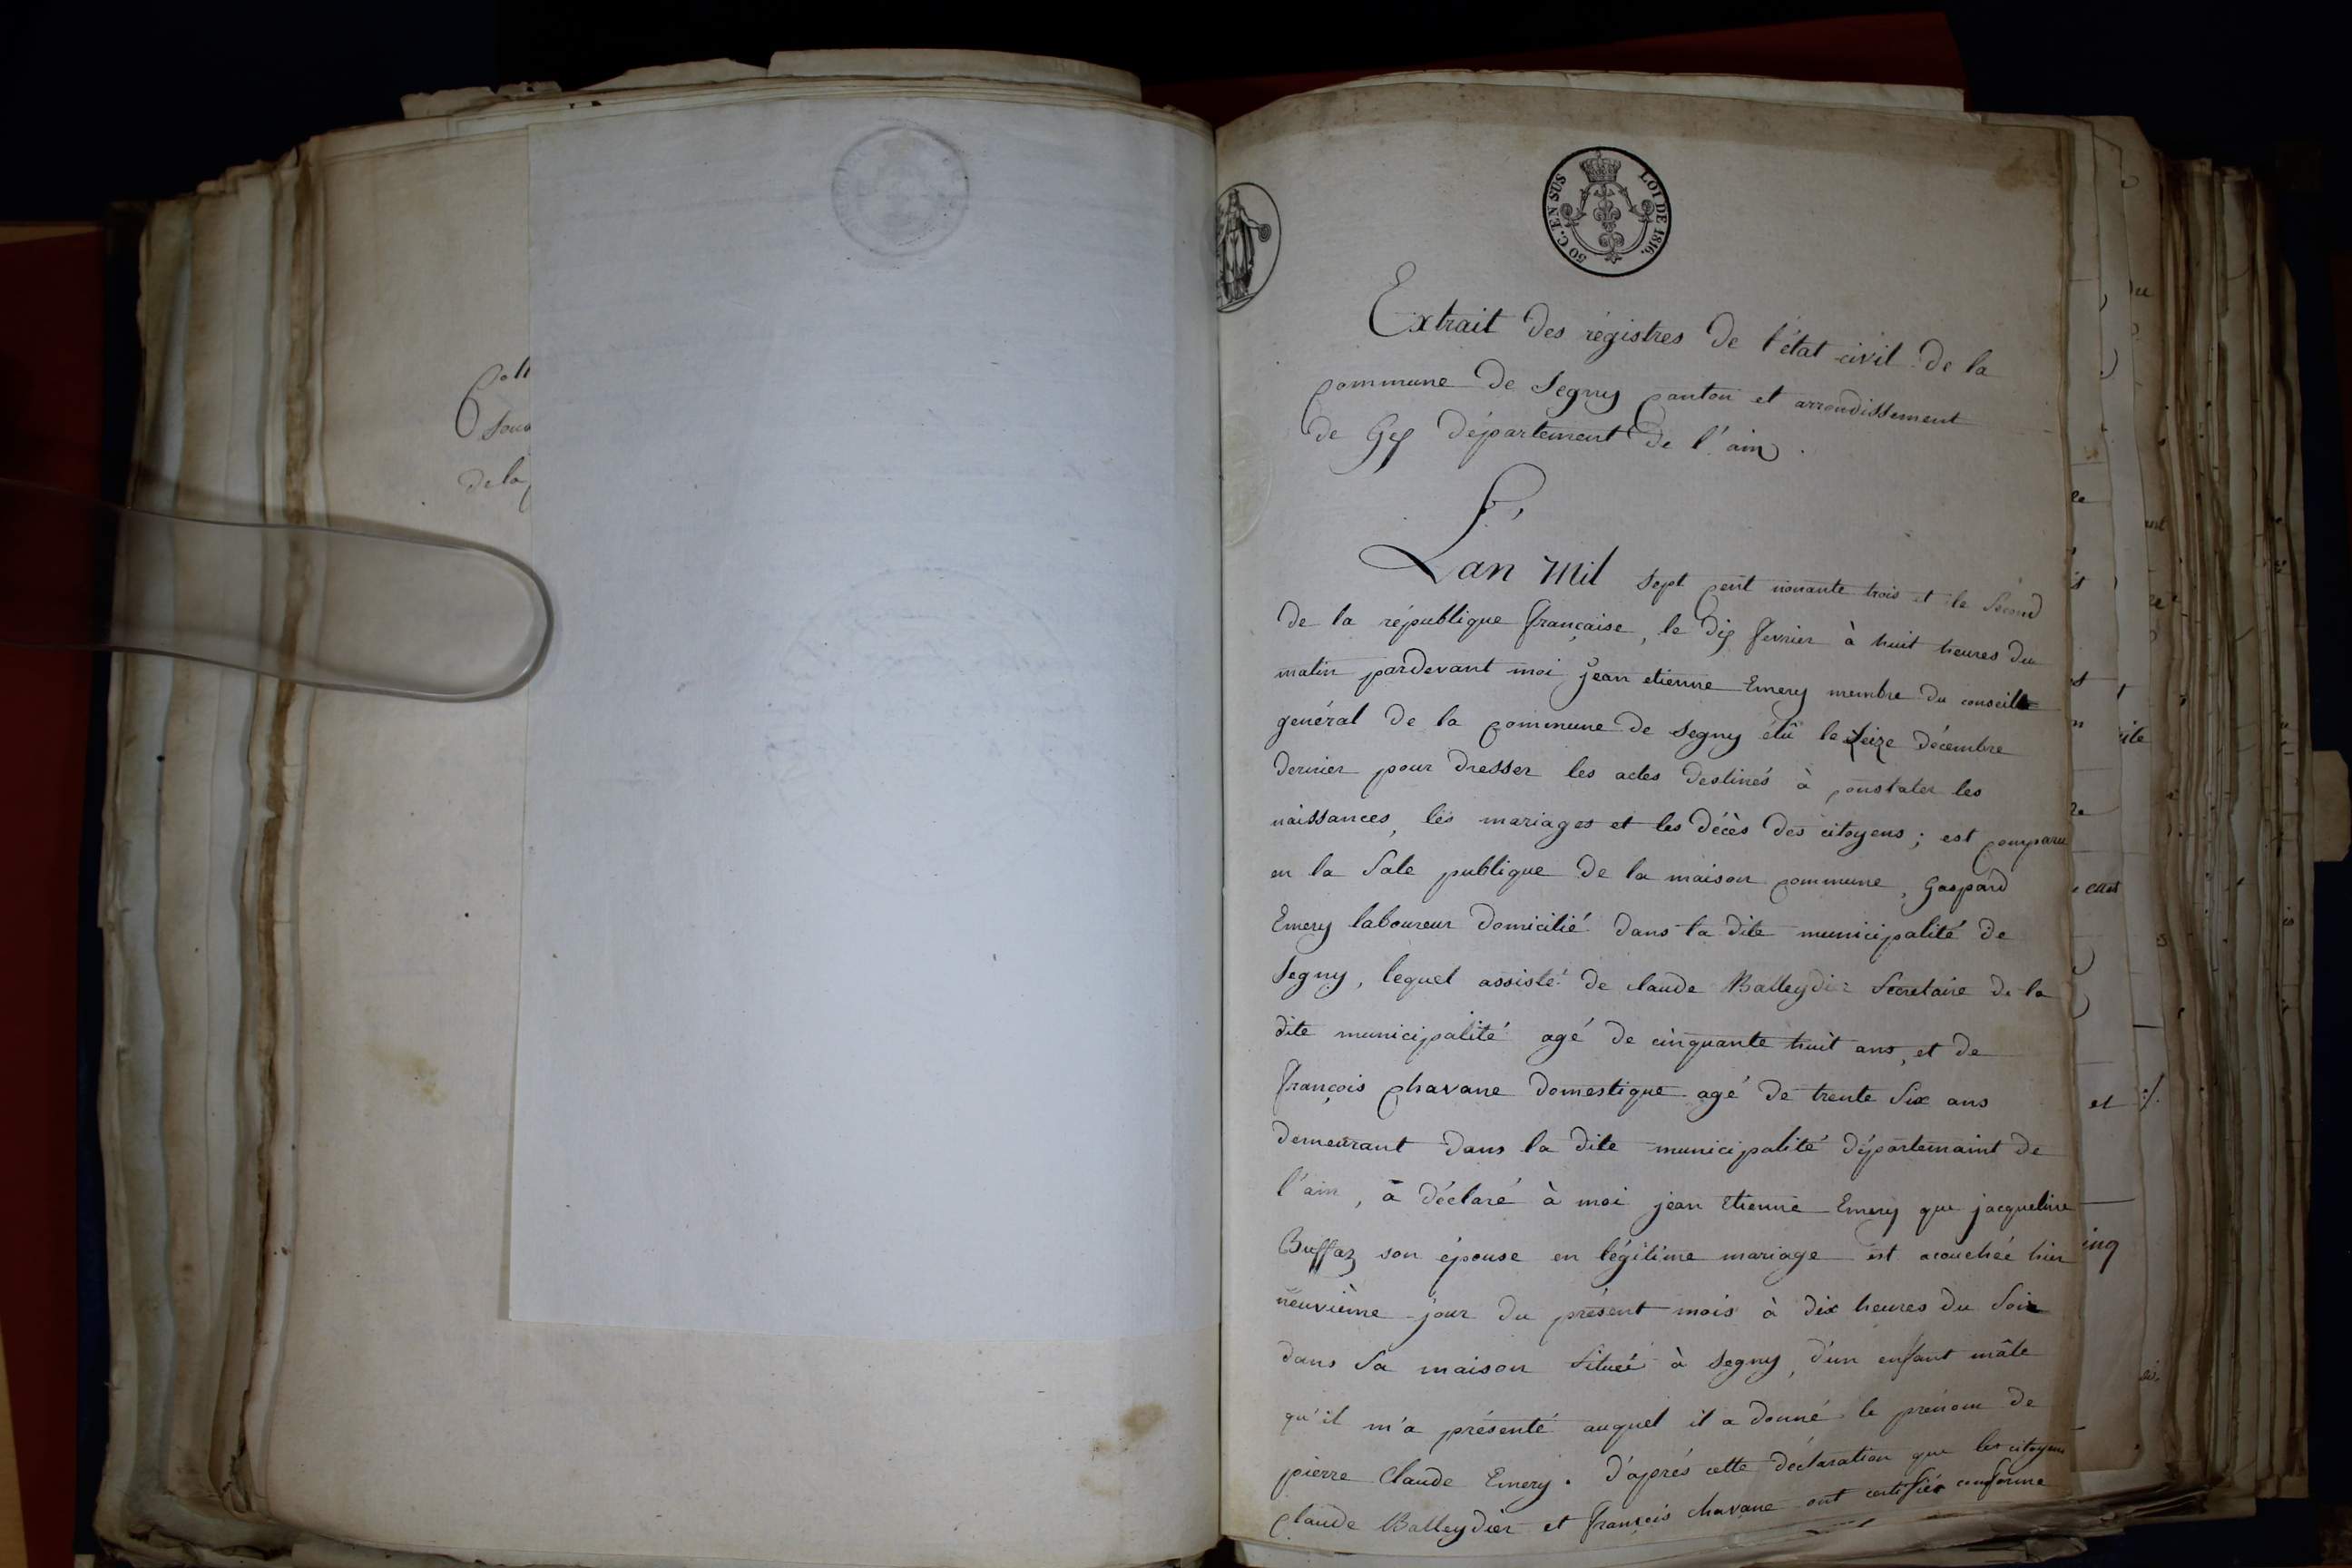 Sous
de la
50 C. EN SUS
LOI DE 1816.
Extrait des régistres de l'état civil de la
commune de Segny canton et arrondissement
de Gex département de l'ain.
L'an Mil sept cent nonante trois et le second
de la république française, le dix fevrier à huit heures du
matin pardevant moi jean etienne Emery membre du conseil
genéral de la commune de Segny élû le seize décembre
dernier pour dresser les actes destinés à constater les
naissances, les mariages et les décès des citoyens; est comparu
en la Sale publique de la maison commune, Gaspard
Emery laboureur domicilié dans la dite municipalité de
Segny, lequel assisté de claude Balleydier Secretaire de la
dite municipalité agé de cinquante huit ans, et de
françois Chavane domestique agé de trente Six ans
demeurant dans la dite municipalité départemaint de
l'ain, a déclaré à moi jean Etienne Emery que jacqueline
Buffaz son épouse en légitime mariage est acouchée hier
neuvième jour du présent mois à dix heures du Soir
dans Sa maison Situeé à Segny, d'un enfant mâle
qu'il m'a présenté auquel il a donné le prénom de
pierre Claude Emery. D'après cette déclaration que les citoyens
Claude Balleydier et françois chavane ont certifiés conforme
et